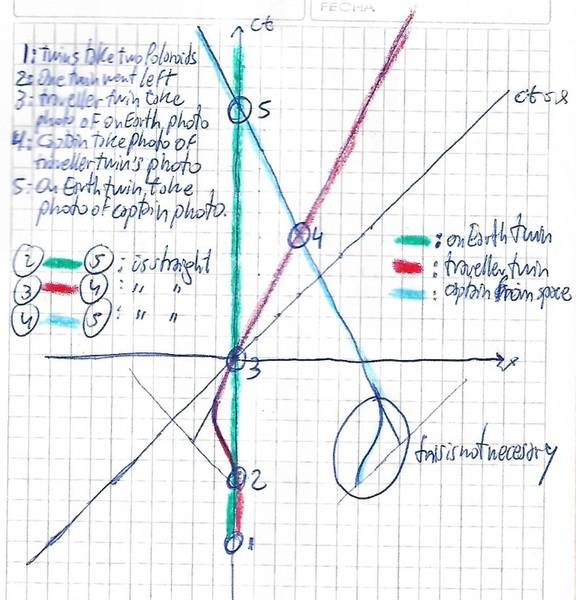 FECHA
ct
1: twins take two Poloroids
2: One twin went left
3: traveller twin take
photo of on Earth photo
4: Captain take photo of
traveller twin's photo
5: On Earth twin take
photo of captain photo.
5
ct=x
4
: on Earth twin
: traveller twin
: captain from space
2 5 : is straight
3 4 : " "
4 5 : " "
x
3
this is not necesary
2
1